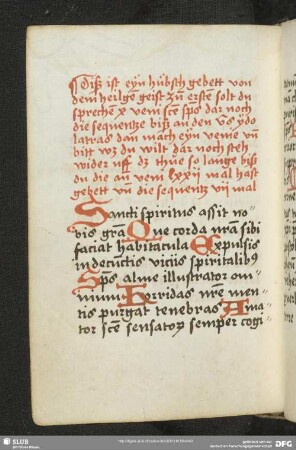 Diß ist eyn hübsch gebett von
dem heilgē geist zū erste solt du
sprechē x veni scē sps dar noch
die sequentze biß an den vs ydo
latras dan mach eyn venie vn̄
bitt wz du wilt dar noch steh
wider vff dz thue so lange biß
du die an veni lxxij mal hast
gebett vn̄ die sequentz vij mal
Sancti spiritus assit no-
bis grā Que corda nr̄a sibi
faciat habitacula Expulsis
inde cunctis viciis spiritalibꝰ
Sps alme illustrator om-
nium Horridas nr̄e men-
tis purgat tenebras Ama-
tor scē sensatoꝝ semper cogi
SLUB
DFG